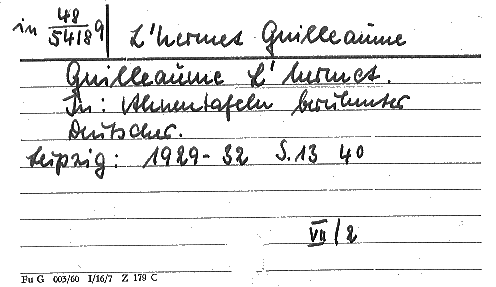 in 48/54189 L'hermet Guilleaume
Guilleaume L'hermet.
In: Ahnentafeln berühmter
Deutscher.
Leipzig: 1929-32 S.13 40
VII/2
Fu G 003/60 I/16/7 Z 179 C